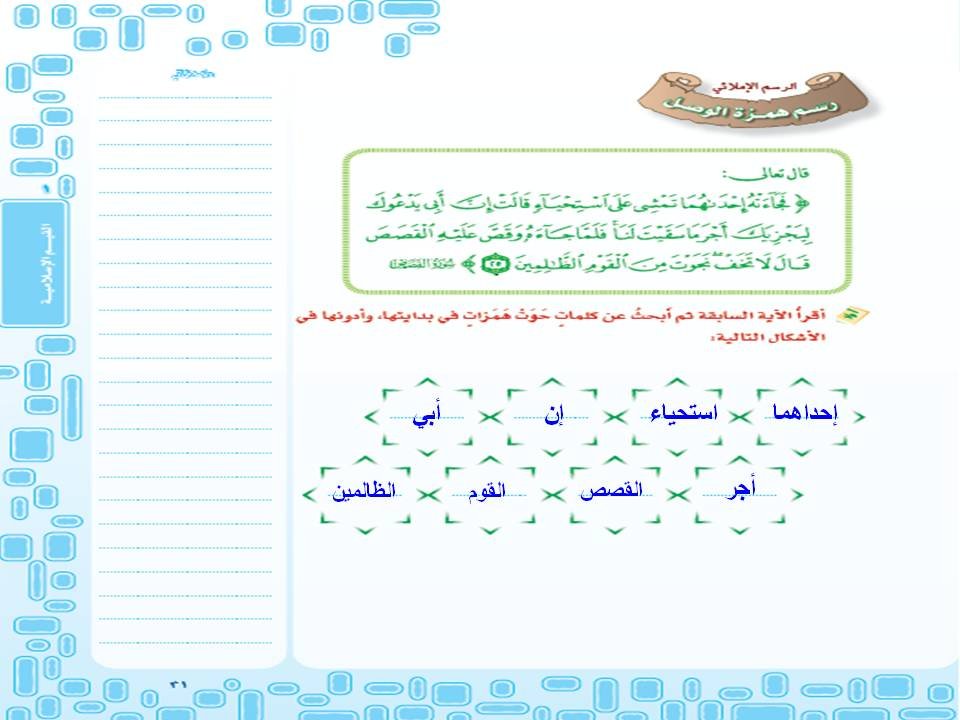 الرسم الإملائي
رسم همزة الوصل
قال تعالى:
﴿ فَجَاءَتْهُ إِحْدَىٰهُمَا تَمْشِي عَلَى ٱسْتِحْيَاءٍ قَالَتْ إِنَّ أَبِي يَدْعُوكَ
لِيَجْزِيَكَ أَجْرَ مَا سَقَيْتَ لَنَا فَلَمَّا جَاءَهُ وَقَصَّ عَلَيْهِ ٱلْقَصَصَ
قَالَ لَا تَخَفْ نَجَوْتَ مِنَ ٱلْقَوْمِ ٱلظَّالِمِينَ ٢٥ ﴾ سورة القصص
أقرأُ الآية السابقة ثم أبحثُ عن كلماتٍ حَوَتْ هَمَزاتٍ في بدايتها، وأدونها في
الأشكال التالية:
إحداهما استحياء إن أبي
أجر القصص القوم الظالمين
القيم الإسلامية
٣١